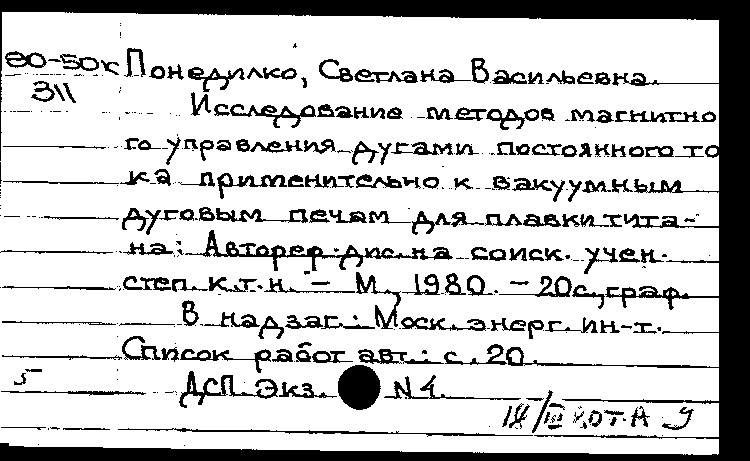 80-50к Понедилко, Светлана Васильевна.
311
Исследование методов магнитно
го управления дугами постоянного то
ка применительно к вакуумным
дуговым печам для плавки тита-
на: Автореф. дис. на соиск. учен.
степ. к.т.н. - М., 1980. - 20с., граф.
В надзаг.: Моск. энерг. ин-т.
Список работ авт.: с. 20.
5 ДСП. Экз. N 4.
18/III